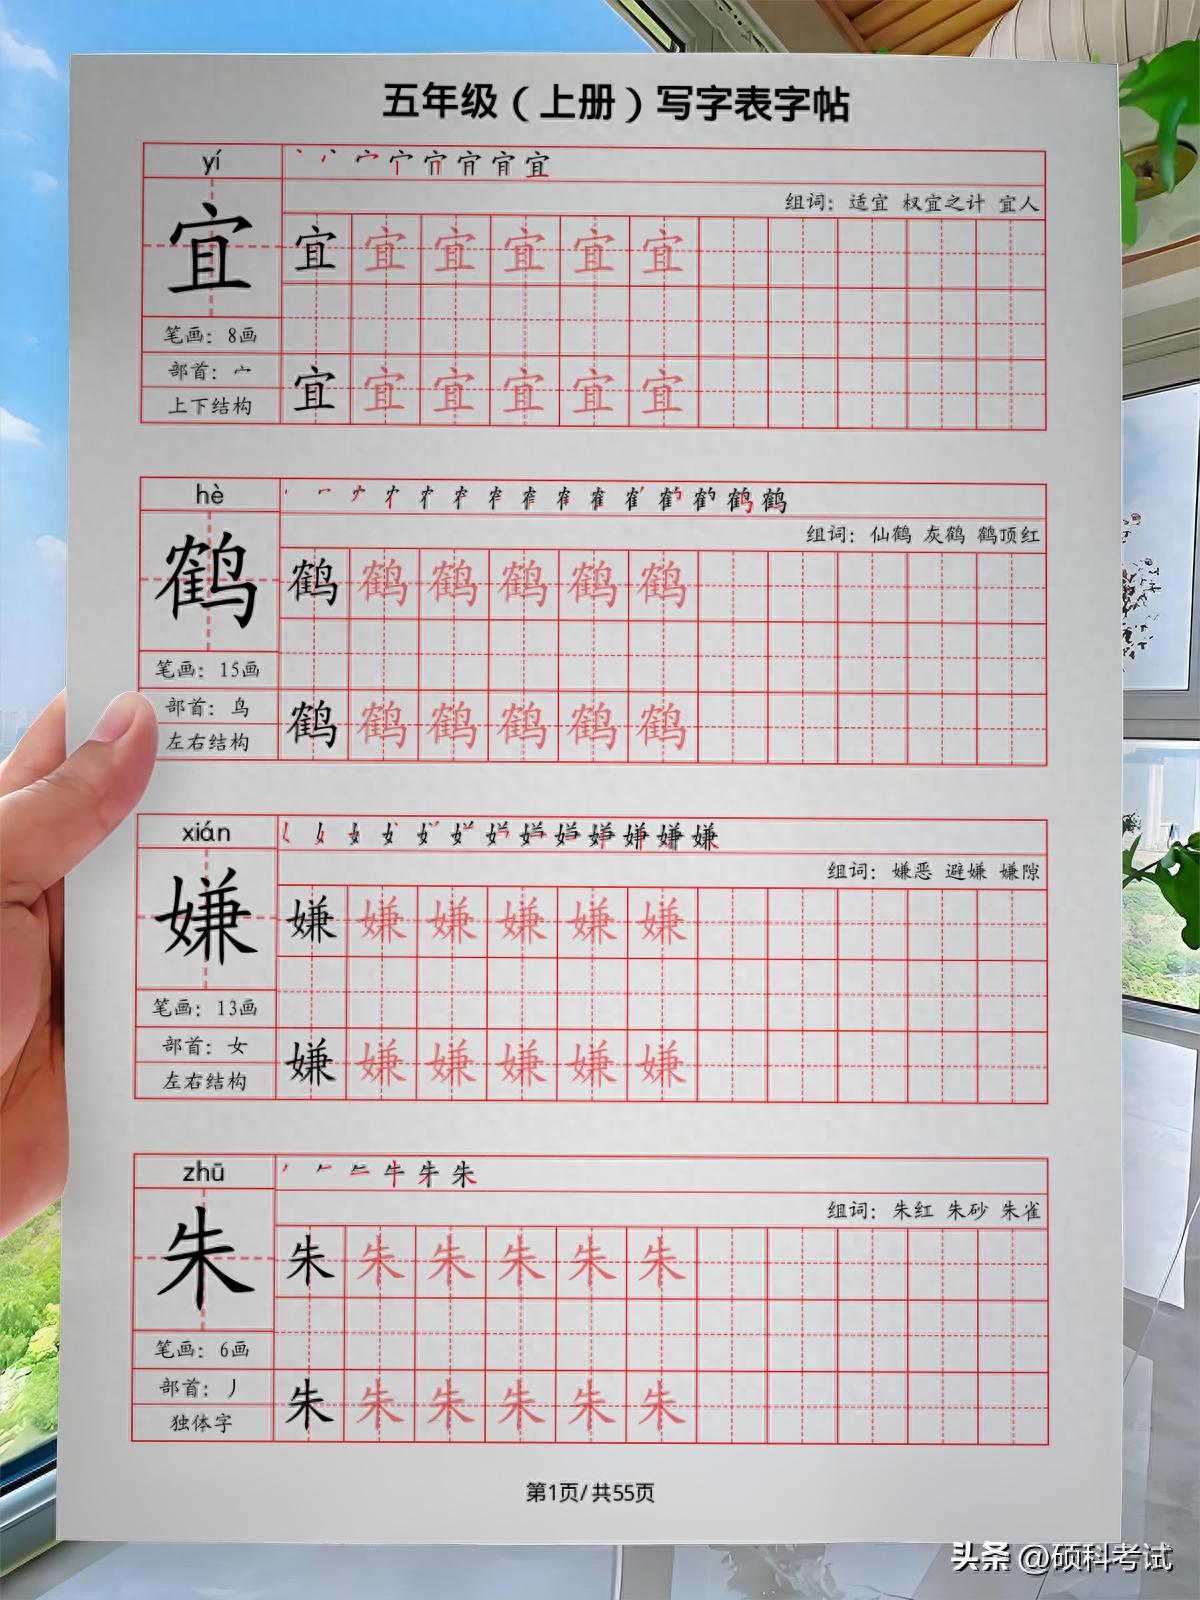 五年级（上册）写字表字帖
yí
组词：适宜 权宜之计 宜人
宜
宜 宜 宜 宜 宜 宜
笔画：8画
部首：宀
上下结构
宜 宜 宜 宜 宜 宜
hè
组词：仙鹤 灰鹤 鹤顶红
鹤
鹤 鹤 鹤 鹤 鹤 鹤
笔画：15画
部首：鸟
左右结构
鹤 鹤 鹤 鹤 鹤 鹤
xián
组词：嫌恶 避嫌 嫌隙
嫌
嫌 嫌 嫌 嫌 嫌 嫌
笔画：13画
部首：女
左右结构
嫌 嫌 嫌 嫌 嫌 嫌
zhū
组词：朱红 朱砂 朱雀
朱
朱 朱 朱 朱 朱 朱
笔画：6画
部首：丿
独体字
朱 朱 朱 朱 朱 朱
第1页/共55页
头条 @硕科考试